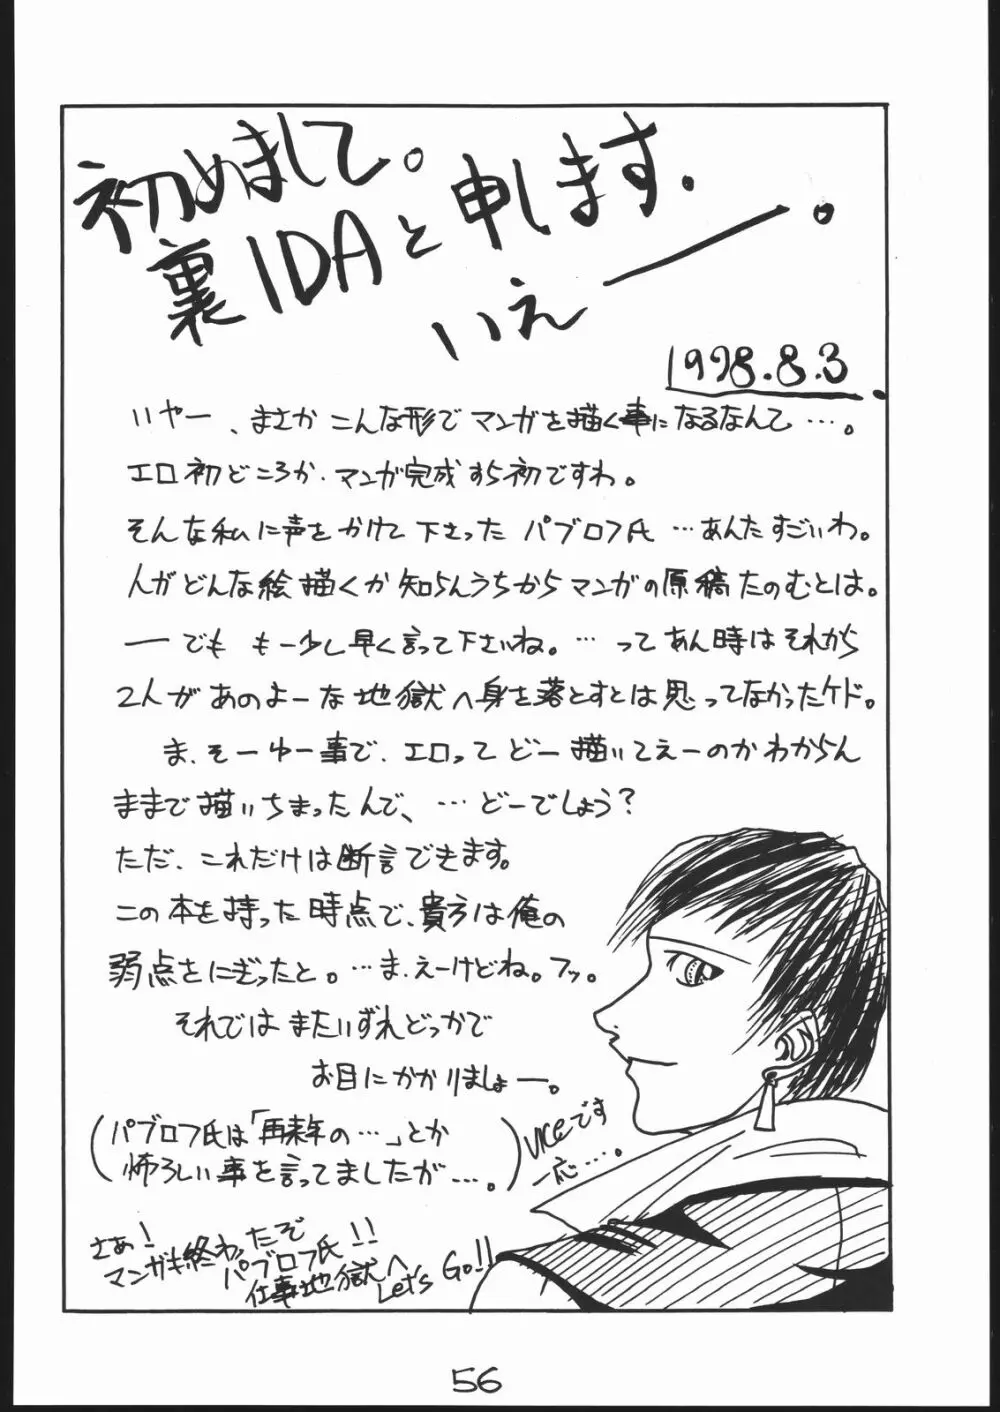 初めまして。
裏IDAと申します.
いえー。
1998.8.3.
いやー、まさかこんな形でマンガを描く事になるなんて…。
エロ初どころか、マンガ完成すら初ですわ。
そんな私に声をかけて下さったパブロフ氏…あんたすごいわ。
人がどんな絵描くか知らんうちからマンガの原稿たのむとは。
―でももー少し早く言って下さいね。…ってあん時はそれから
2人があのよーな地獄へ身を落とすとは思ってなかったケド。
ま、そーゆー事で、エロってどー描いてえーのかわからん
ままで描いちまったんで、…どーでしょう?
ただ、これだけは断言できます。
この本を持った時点で、貴方は俺の
弱点をにぎったと。…ま、えーけどね。フッ。
それではまたいずれどっかで
お目にかかりましょー。
(パブロフ氏は「再来年の…」とか
怖ろしい事を言ってましたが…。)
VICEです
一応…。
さぁ!
マンガも終わったぞ
パブロフ氏!!
仕事地獄へ
Let's Go!!
56